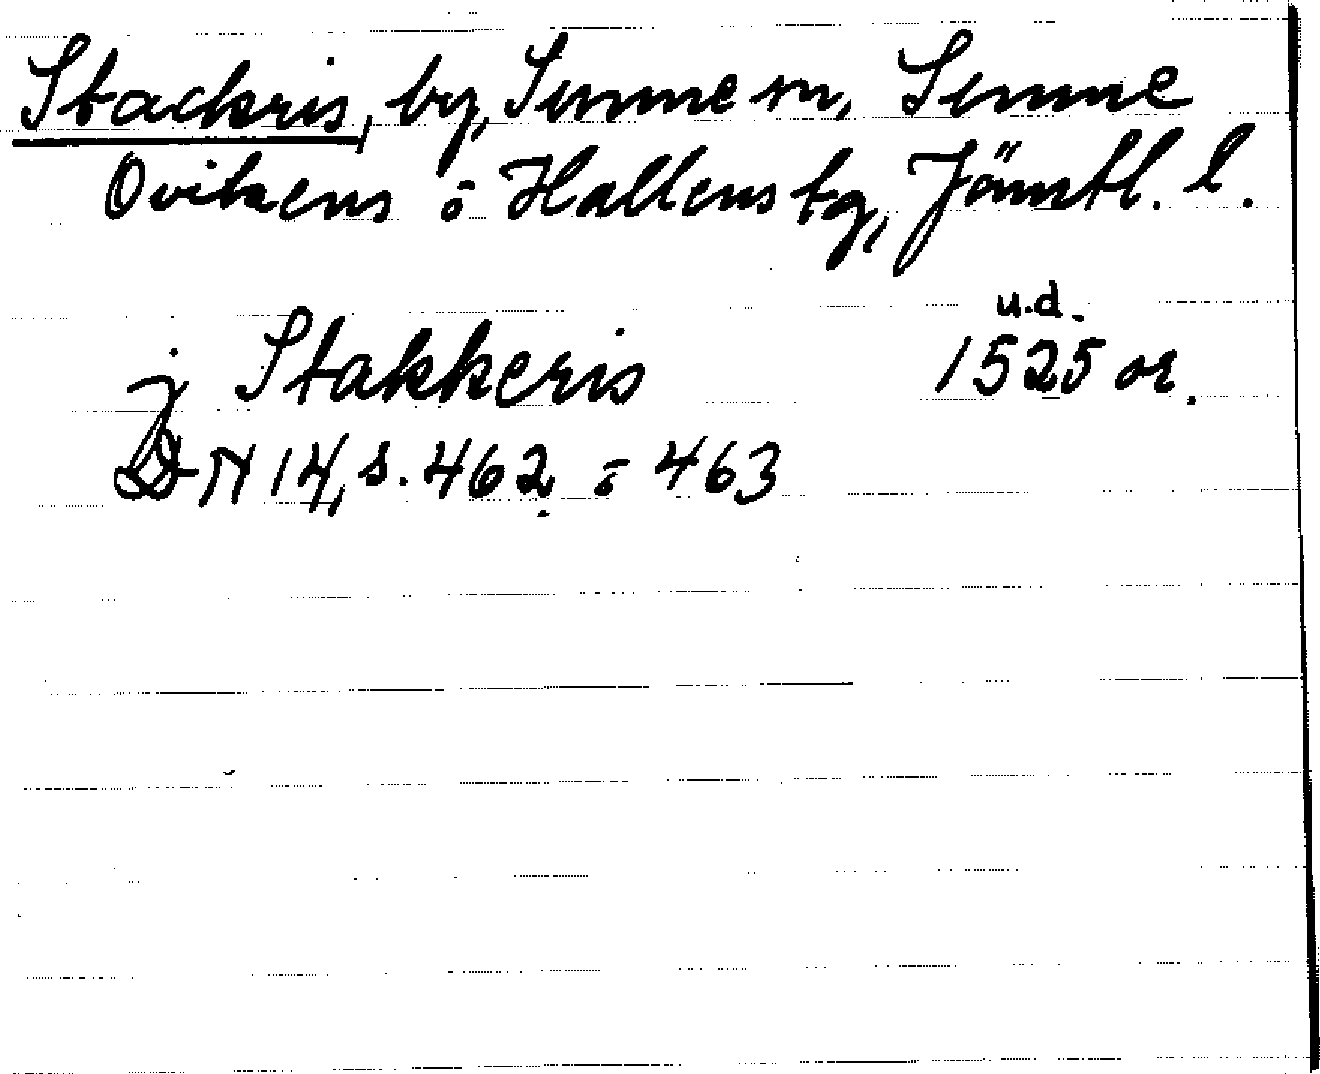 Stackris, by, Sunne sn, Sunne
Ovikens o Hallens tg, Jämtl. l.
u.d.
j Stakkeris 1525 or.
DN 14, s. 462 o 463